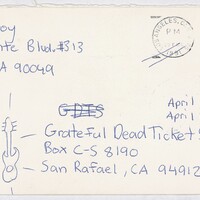 oy
nte Blvd. #313
A 90049
ANGELES, C
PM
April
April
GDTS
Grateful Dead Ticket S
Box C-S 8190
San Rafael, CA 94912